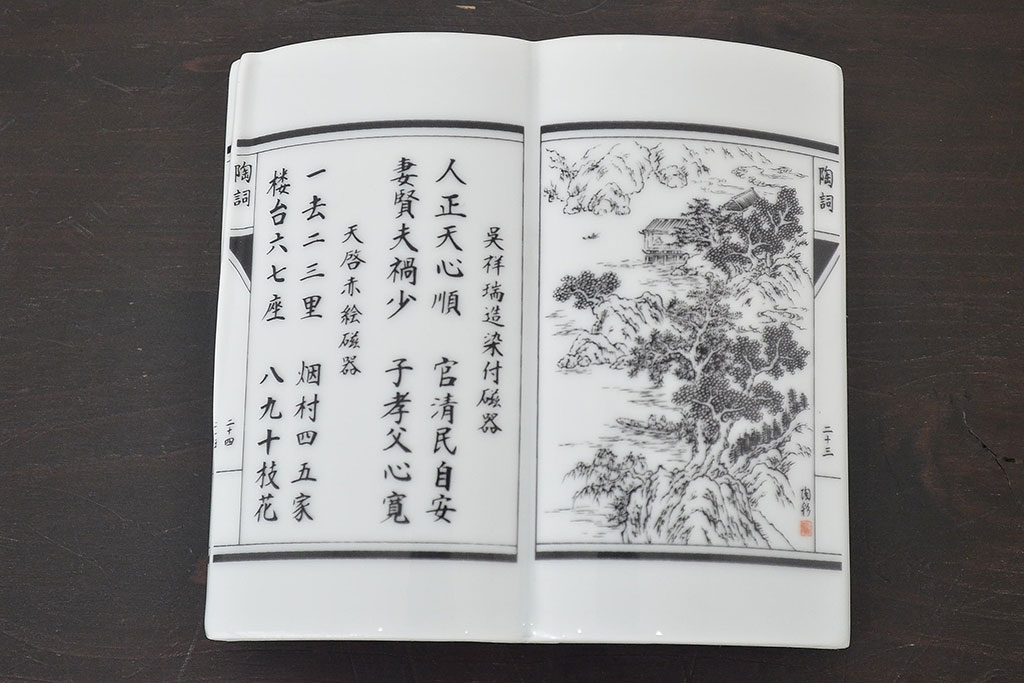 陶詞
二十三
陶彩
呉祥瑞造染付磁器
人正天心順 官清民自安
妻賢夫禍少 子孝父心寛
天啓赤絵磁器
一去二三里 烟村四五家
楼台六七座 八九十枝花
陶詞
二十四